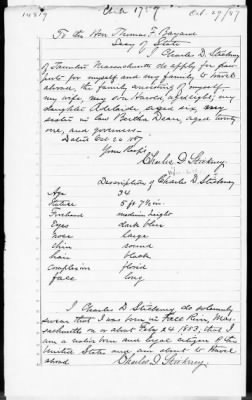 14819 Ch. 1759 Oct. 29/87
To the Hon. Thomas F. Bayard
Secy of State
Charles D. Stickney
of Taunton Massachusetts do apply for
for myself and my family to travel
abroad, the family consisting of myself
my wife, my son Harold, aged eight, my
daughter Adelaide aged six, my
sister in law Bertha Dean, aged twenty
one, and governess.
Dated Oct 20 1887
Your Resp'y
Charles D. Stickney
Description of Charles D. Stickney
Age 34
Stature 5 ft 7½ in.
Forehead medium height
Eyes dark blue
nose large
chin round
hair black
complexion florid
face long
I Charles D Stickney do solemnly
swear that I was born in Fall River, Mas-
sachusetts on or about Feby 24 1853, that I
am a native born and loyal citizen of the
United States and am about to travel
abroad Charles D. Stickney